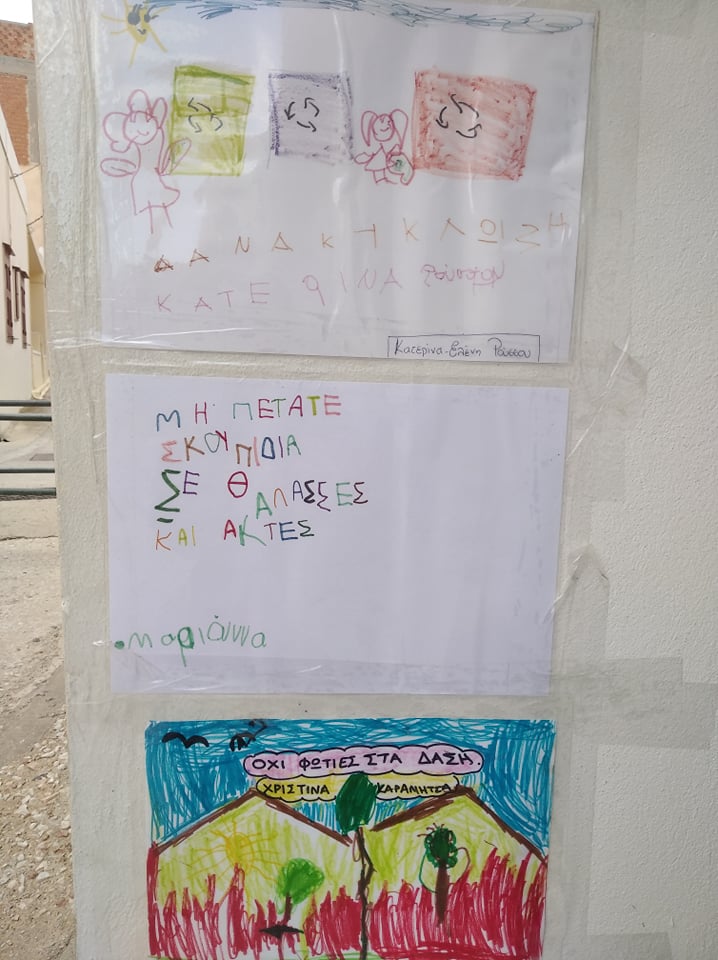 Α Α Ν Δ Κ Υ Κ Λ Ω Ι Σ Η
ΚΑΤΕΡΙΝΑ Ρούσσου
Κατερίνα-Ελένη Ρούσσου
ΜΗ ΠΕΤΑΤΕ
ΣΚΟΥΠΙΔΙΑ
ΣΕ ΘΑΛΑΣΣΕΣ
ΚΑΙ ΑΚΤΕΣ
μαριάννα
ΟΧΙ ΦΩΤΙΕΣ ΣΤΑ ΔΑΣΗ.
ΧΡΙΣΤΙΝΑ ΚΑΡΑΜΗΤΣΑ